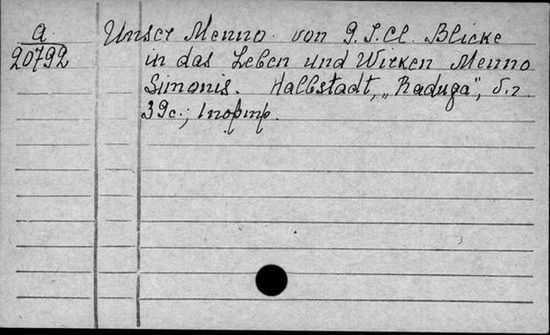 a
20792
Unser Menno von G. I. Cl. Blicke
in das Leben und Wirken Menno
Simonis. Halbstadt, „Raduga“, б.г.
39с.; 1портр.